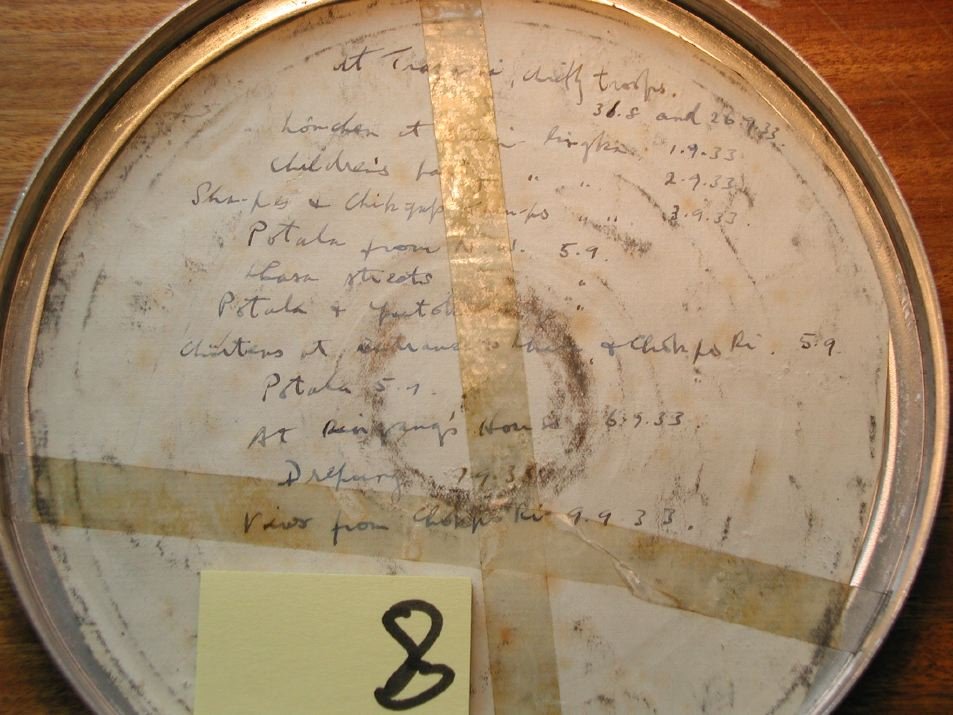 At Trapchi, chiefly troops.
31.8 and 26.9.33
Lönchen at Ringka 1.9.33.
Children's " " 2.9.33
Shapes & " " 3.9.33.
Potala from 5.9.
Lhasa streets "
Potala & "
Chörtens at entrance to Lhasa & Chökpo Ri. 5.9.
Potala 5.9.
At Ringang's House 6.9.33.
Drepung 7.9.33
Views from Chökpo Ri 9.9.33.
8